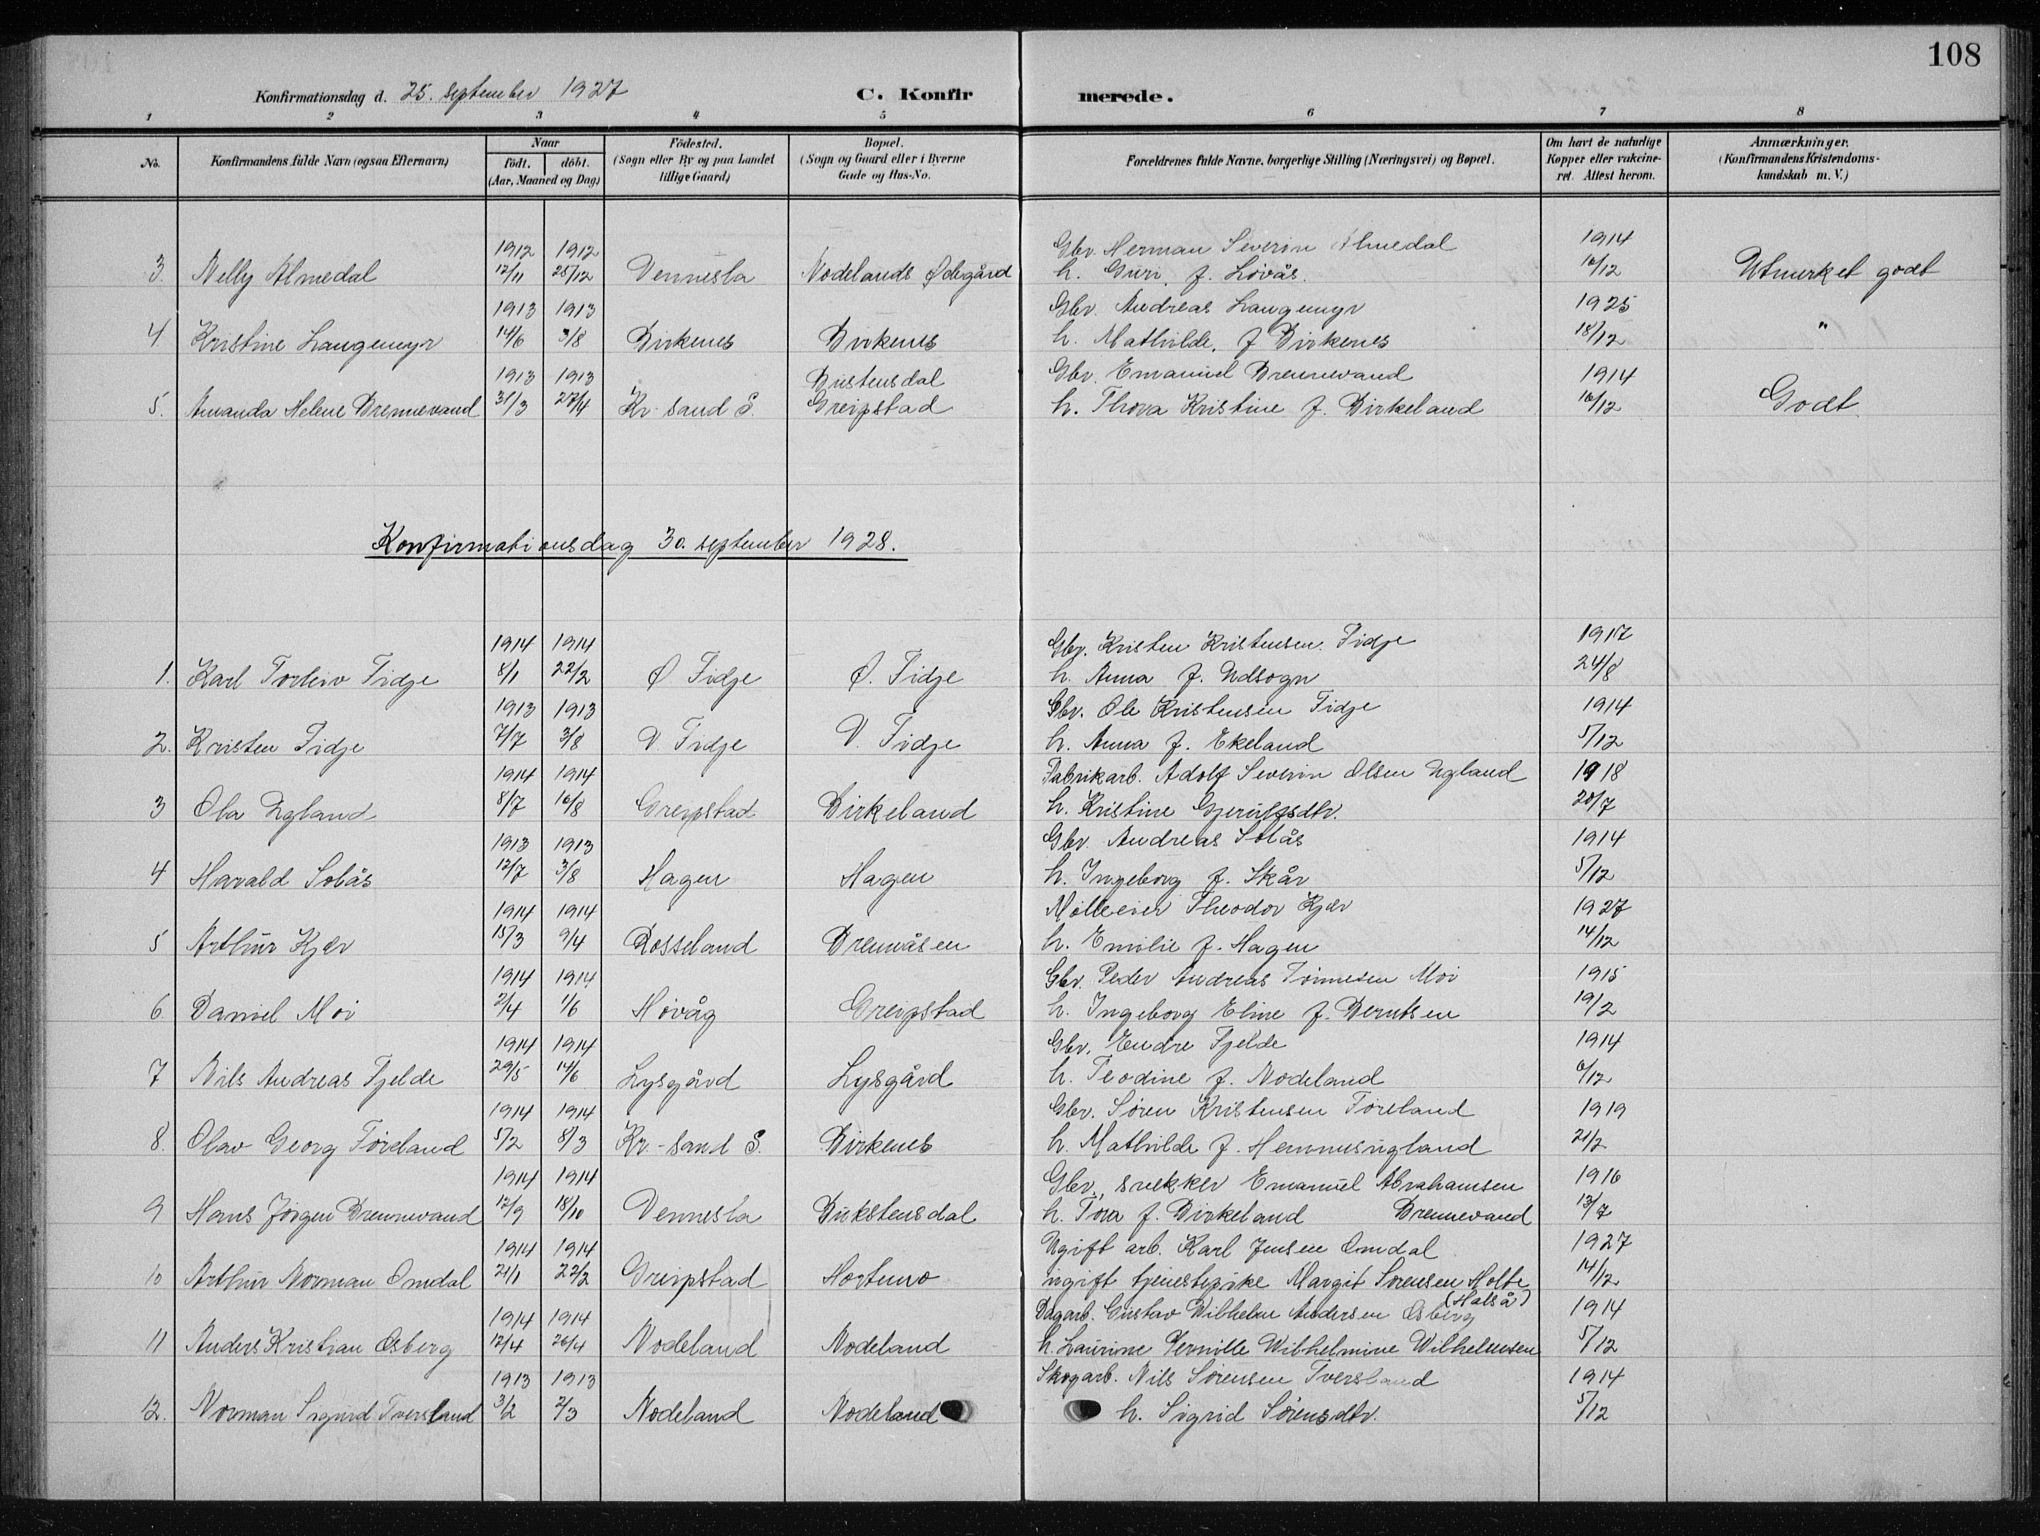 108
Konfirmationsdag d. 25. september 1927 C. Konfir merede.
1 2 3 4 5 6 7 8
No. Konfirmandens fulde Navn (ogsaa Efternavn) Naar født. døbt. (Aar, Maaned og Dag) Fødested. (Sogn eller By og paa Landet tillige Gaard) Bopæl. (Sogn og Gaard eller i Byerne Gade og Hus-No. Forældrenes fulde Navne, borgerlige Stilling (Næringsvei) og Bopæl. Om havt de naturlige Kopper eller vakcineret. Attest herom. Anmærkninger. (Konfirmandens Kristendomskundskab m. V.)
1912 1912 Gbr. Herman Severin Almedal 1914
3. Nelly Almedal 12/11 25/12 Vennesla Nodelands Ødegård h. Guri, f. Løvås. 10/12 Utmerket godt
1913 1913 Gbr. Andreas Langemyr 1925
4. Kristine Langemyr 14/6 3/8 Birkenes Birkenes h. Mathilde, f Birkenes 18/12 "
1913 1913 Bustensdal Gbr. Emanuel Brennevand 1914
5. Amanda Helene Brennevand 31/3 27/4 Kr-sand S. Greipstad h. Thora Kristine f. Birkeland 10/12 Godt
Konfirmationsdag 30. september 1928.
1914 1914 Gbr. Kristen Kristensen Fidje 1917
1. Karl Torleiv Fidje 8/1 22/2 Ø Fidje Ø. Fidje h. Anna f. Udsogn 24/8
1913 1913 Gbr. Ole Kristensen Fidje 1914
2. Kristen Fidje 7/7 3/8 V. Fidje V. Fidje h. Anna f. Ekeland 5/12
1914 1914 Fabrikarb. Adolf Severin Olsen Ugland 1918
3 Ola Ugland 8/7 16/8 Greipstad Birkeland h. Kristine Gjerulfsdtr. 20/7
1913 1913 Gbr. Andreas Solås 1914
4 Harald Solås 12/7 3/8 Hagen Hagen h. Ingeborg f. Skår 5/12
1914 1914 Mølleeier Theodor Kjær 1927
5 Arthur Kjær 15/3 9/4 Rosseland Brennåsen h. Emilie f. Hagen 14/12
1914 1914 Gbr. Peder Andreas Tønnesen Moi 1915
6. Daniel Moi 2/4 1/6 Høvåg Greipstad h. Ingeborg Eline f. Berntsen 19/2
1914 1914 Gbr. Endre Fjelde 1914
7 Nils Andreas Fjelde 29/5 14/6 Lysgård Lysgård h. Teodine f. Nodeland /12
1914 1914 Gbr. Søren Kristensen Føreland 1919
8. Olav Georg Føreland 5/2 8/3 Kr-sand S. Birkenes h. Mathilde f. Hemmesugland 21/2
1914 1914 Gbr., snekker Emanuel Abrahamsen 1916
9 Hans Jørgen Brennevand 12/9 18/10 Vennesla Bukstensdal h. Tora f. Birkeland Brennevand 13/7
1914 1914 Ugift arb. Karl Jensen Omdal 1927
10 Arthur Norman Omdal 21/1 22/2 Greipstad Hortemo ugift tjenestepike Margit Sørensen Holte 14/12
(Halså)
1914 1914 Dagarb. Gustav Wilhelm Andersen Osberg 1914
11 Anders Kristian Osberg 12/4 26/4 Nodeland Nodeland h. Laurine Pernille Wilhelmine Wilhelmsen 5/12
1913 1913 Skogarb. Nils Sørensen Tversland 1914
12. Norman Sigurd Tversland 3/2 2/3 Nodeland Nodeland h. Sigrid Sørensdtr. 5/12